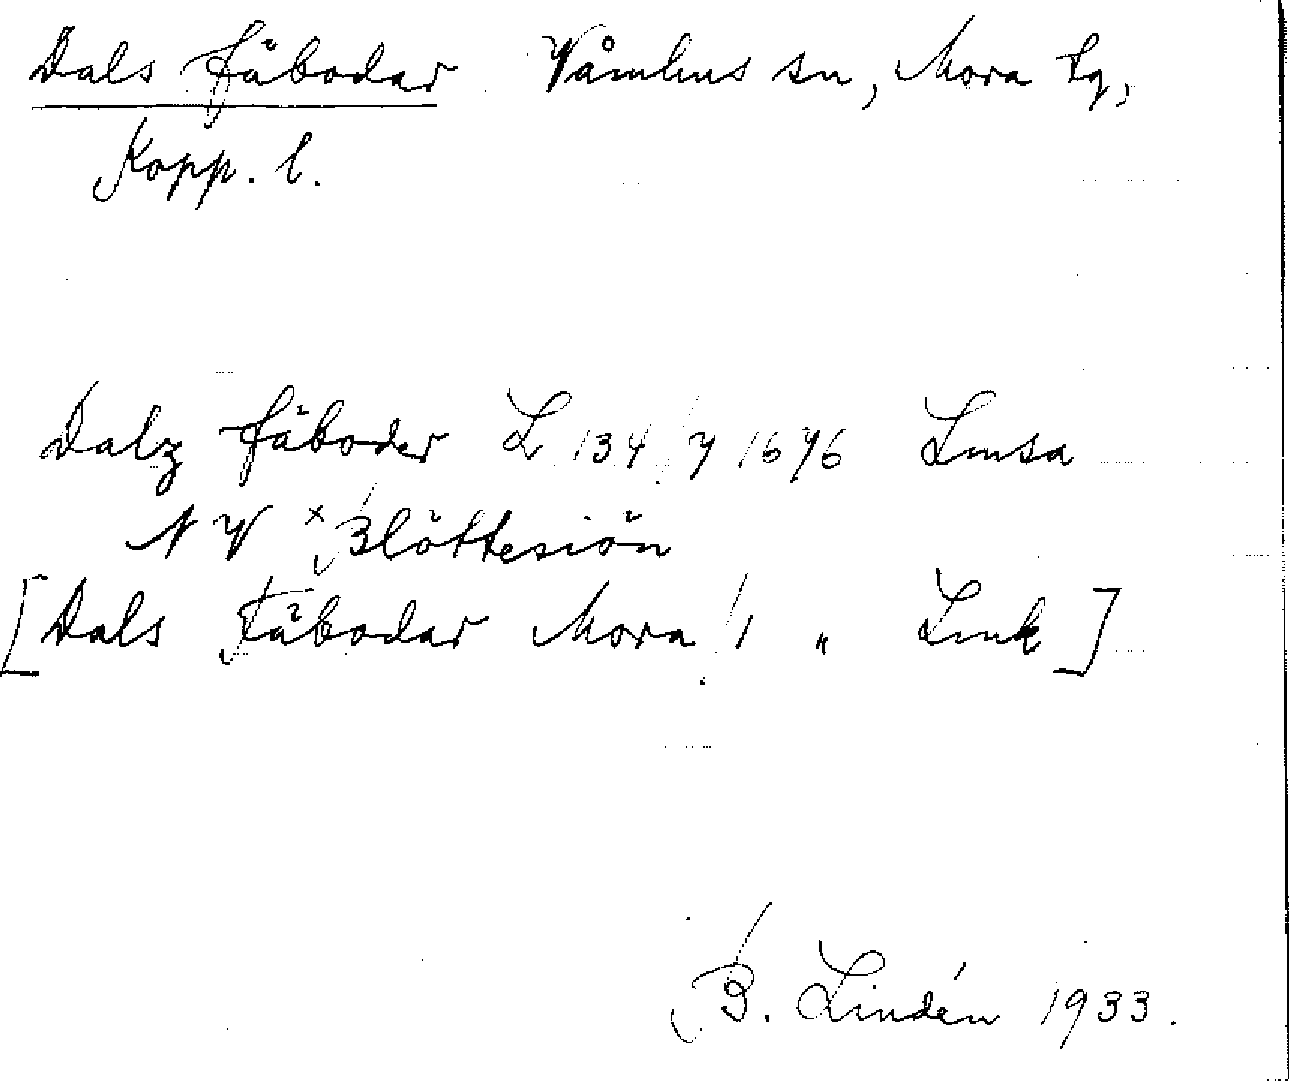 Dals fäbodar Våmhus sn, Mora tg,
Kopp. l.
Dalz fäboder L 134 / 7 1676 Lmsa
NV × Blöttesiön
[Dals Fäbodar Mora / 1 „ Lmk]
B. Lindén 1933.